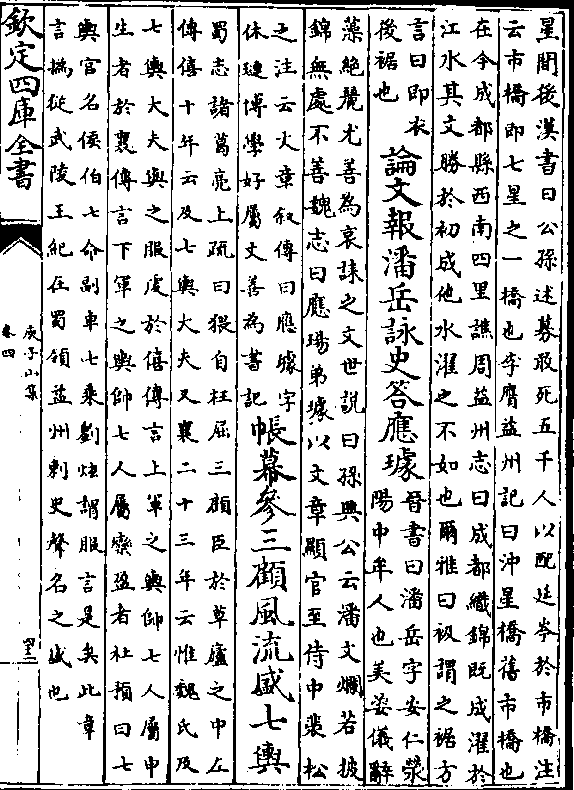 星間後漢書曰公孫述募敢死五千人以配延岑於市橋注
云市橋即七星之一橋也李膺益州記曰沖星橋舊市橋也
在今成都縣西南四里譙周益州志曰成都織錦既成濯於
江水其文勝於初成他水濯之不如也爾雅曰衱謂之裾方
言曰即衣
後裾也
論文報潘岳詠史答應璩
晉書曰潘岳字安仁滎
陽中牟人也美姿儀辭
藻絶麗尤善為哀誄之文世說曰孫興公云潘文爛若披
錦無處不善魏志曰應瑒弟璩以文章顯官至侍中裴松
之注云文章叙傳曰應璩字
休璉博學好屬文善為書記
帳幕參三顧風流盛七輿
蜀志諸葛亮上疏曰猥自枉屈三顧臣於草廬之中左
傳僖十年云及七輿大夫又襄二十三年云惟魏氏及
七輿大夫輿之服虔於僖傳言上軍之輿帥七人屬申
生者於襄傳言下軍之輿帥七人屬欒盈者杜預曰七
輿官名侯伯七命副車七乘劉炫謂服言是矣此章
言撝從武陵王紀在蜀領益州刺史聲名之盛也
欽定四庫全書
庚子山集
卷四